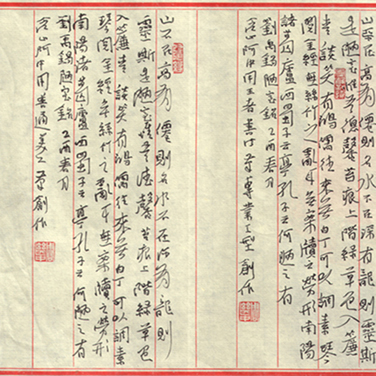 山不在高有僊則名水不在深有龍則靈斯
是陋室惟吾德馨苔痕上階綠草色入簾
青談笑有鴻儒往來無白丁可以調素琴
閱金經無絲竹之亂耳無案牘之勞形南陽
諸葛廬西蜀子雲亭孔子云何陋之有
劉禹錫陋室銘 乙酉春月
創作
山不在高有僊則名水不在深有龍則
靈斯是陋室惟吾德馨苔痕上階綠草色
入簾青談笑有鴻儒往來無白丁可以調素
琴閱金經無絲竹之亂耳無案牘之勞形
南陽諸葛廬西蜀子雲亭孔子云何陋之有
劉禹錫陋室銘 乙酉春月
創作